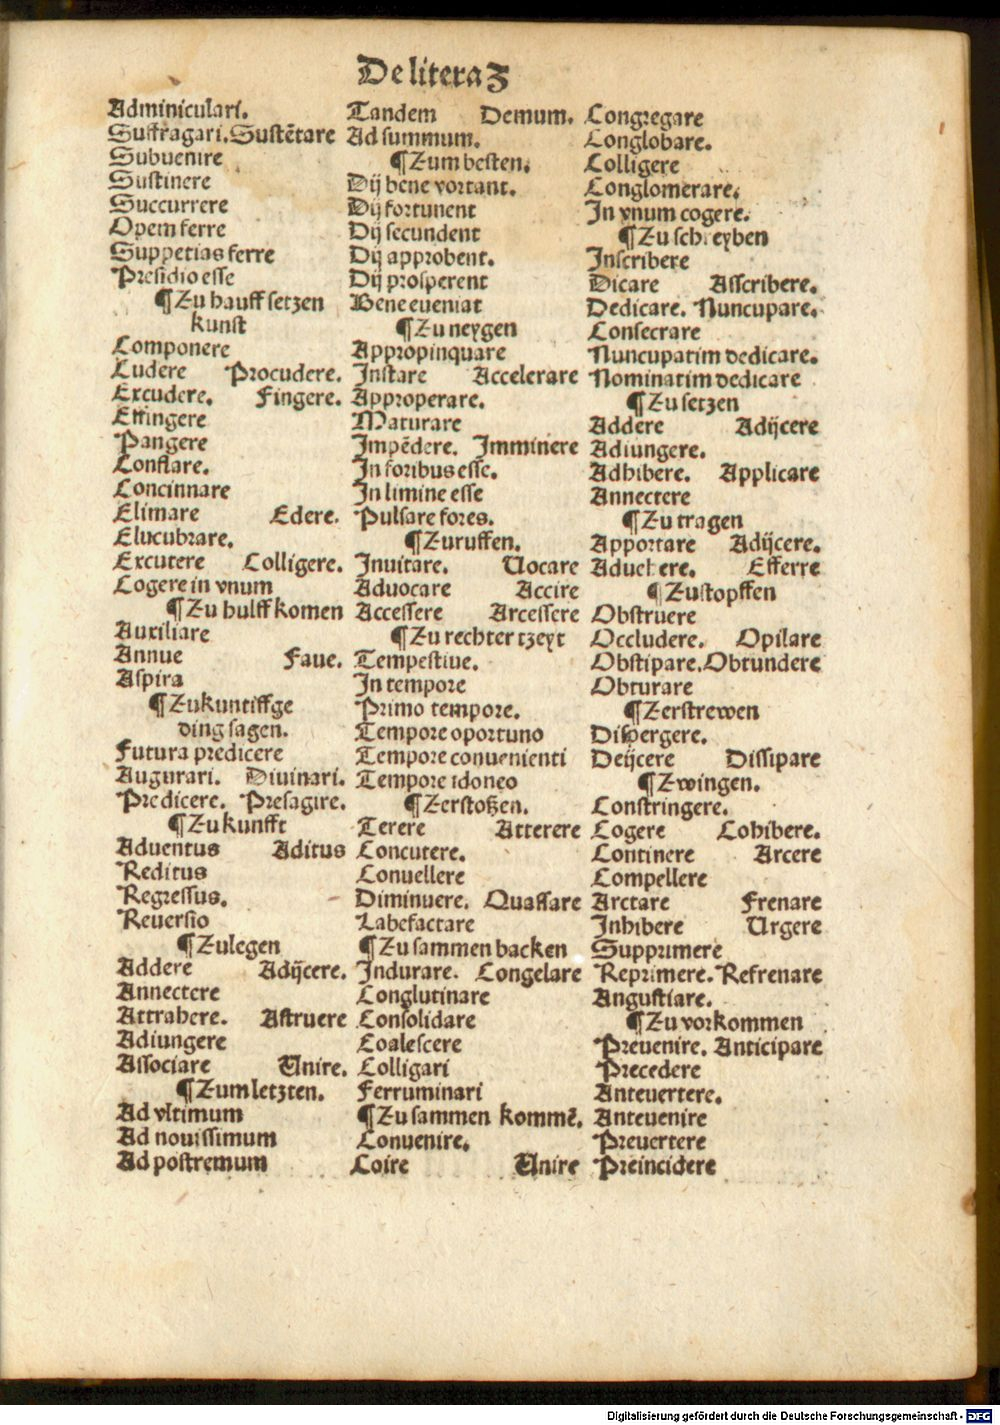 De litera Z
Adminiculari.
Suffragari. Sustētare
Subuenire
Sustinere
Succurrere
Opem ferre
Suppetias ferre
Presidio esse
¶ Zu hauff setzen
kunst
Componere
Cudere Procudere.
Excudere. Fingere.
Effingere
Pangere
Conflare.
Concinnare
Elimare Edere.
Elucubrare.
Excutere Colligere.
Cogere in vnum
¶ Zu hulff komen
Auxiliare
Annue Faue.
Aspira
¶ Zukuntiffge
ding sagen.
Futura predicere
Augurari. Diuinari.
Predicere. Presagire.
¶ Zukunfft
Aduentus Aditus
Reditus
Regressus.
Reuersio
¶ Zulegen
Addere Adijcere.
Annectere
Attrahere. Astruere
Adiungere
Associare Unire.
¶ Zum letzten.
Ad vltimum
Ad nouissimum
Ad postremum
Tandem Demum.
Ad summum.
¶ Zum besten.
Dij bene vortant.
Dij fortunent
Dij secundent
Dij approbent.
Dij prosperent
Bene eueniat
¶ Zu neygen
Appropinquare
Instare Accelerare
Approperare.
Maturare
Impēdere. Imminere
In foribus esse.
In limine esse
Pulsare fores.
¶ Zuruffen.
Inuitare. Uocare
Aduocare Accire
Accessere Arcessere
¶ Zu rechter tzeyt
Tempestiue.
In tempore
Primo tempore.
Tempore oportuno
Tempore conuenienti
Tempore idoneo
¶ Zerstoßen.
Terere Atterere
Concutere.
Conuellere
Diminuere. Quassare
Labefactare
¶ Zu sammen backen
Indurare. Congelare
Conglutinare
Consolidare
Coalescere
Colligari
Ferruminari
¶ Zu sammen kommē.
Conuenire.
Coire Unire
Congregare
Conglobare.
Colligere
Conglomerare.
In vnum cogere.
¶ Zu schreyben
Inscribere
Dicare Asscribere.
Dedicare. Nuncupare.
Consecrare
Nuncupatim dedicare.
Nominatim dedicare
¶ Zu setzen
Addere Adijcere
Adiungere.
Adhibere. Applicare
Annectere
¶ Zu tragen
Apportare Adijcere.
Aduehere. Efferre
¶ Zustopffen
Obstruere
Occludere. Opilare
Obstipare. Obtundere
Obturare
¶ Zerstrewen
Dispergere.
Deijcere Dissipare
¶ Zwingen.
Constringere.
Cogere Cohibere.
Continere Arcere
Compellere
Arctare Frenare
Inhibere Urgere
Supprimere
Reprimere. Refrenare
Angustiare.
¶ Zu vorkommen
Preuenire. Anticipare
Precedere
Anteuertere.
Anteuenire
Preuertere
Preincidere
Digitalisierung gefördert durch die Deutsche Forschungsgemeinschaft - DFG